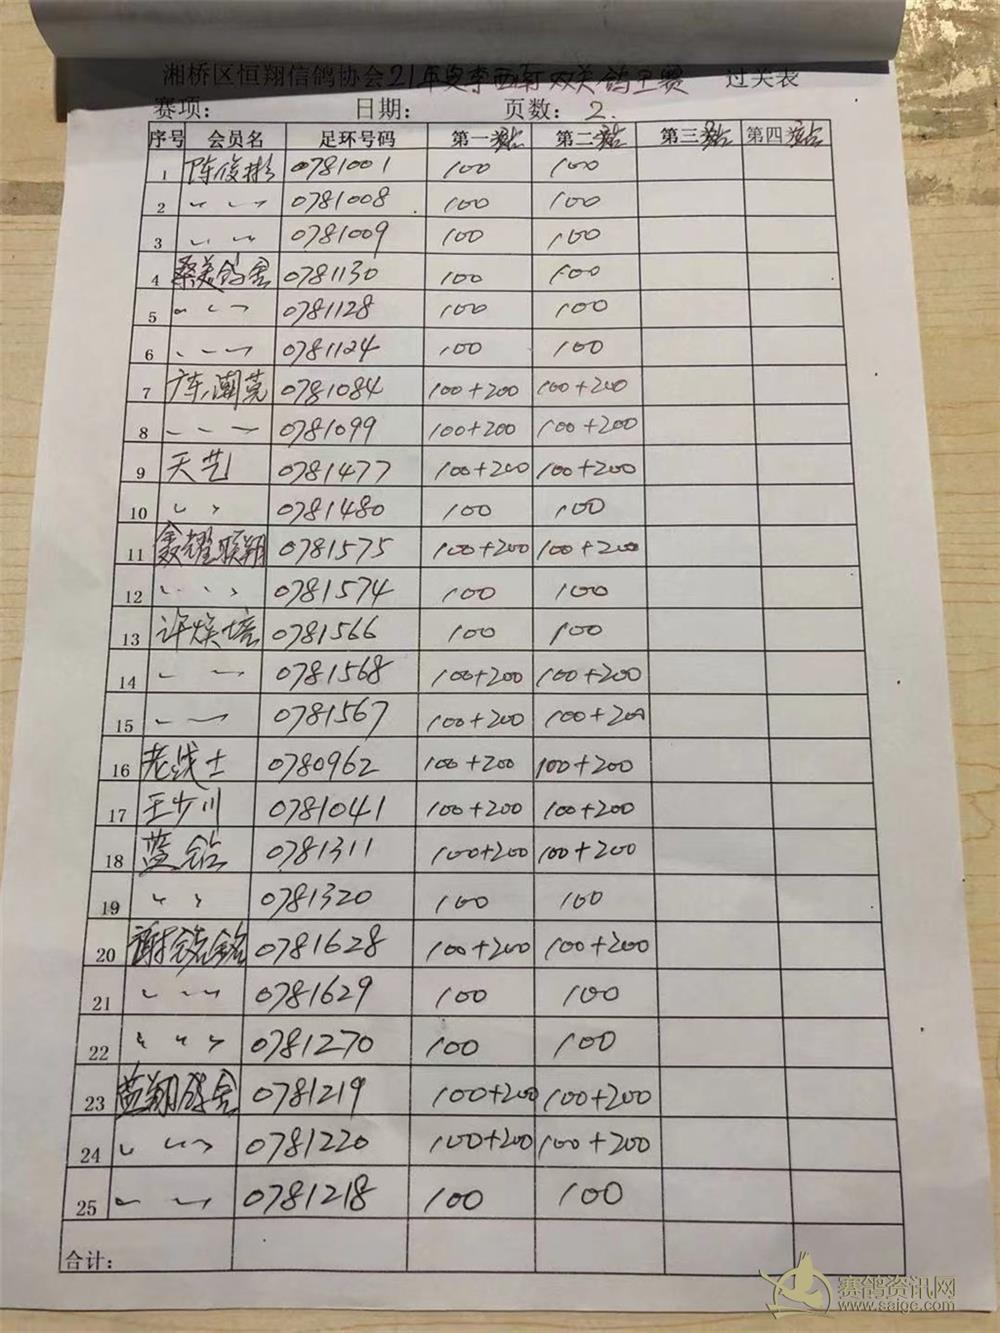 湘桥区恒翔信鸽协会21年夏季西南双关鸽王赛 过关表
赛项: 日期: 页数: 2.
序号 会员名 足环号码 第一站 第二站 第三站 第四站
1 陈俊彬 0781001 100 100
2 〃 〃 0781008 100 100
3 〃 〃 0781009 100 100
4 桑美鸽舍 0781130 100 100
5 〃 〃 〃 0781128 100 100
6 〃 〃 〃 0781124 100 100
7 广东潮莞 0781084 100+200 100+200
8 〃 〃 〃 0781099 100+200 100+200
9 天艺 0781477 100+200 100+200
10 〃 〃 0781480 100 100
11 鑫耀联翔 0781575 100+200 100+200
12 〃 〃 〃 0781574 100 100
13 许焕培 0781566 100 100
14 〃 〃 0781568 100+200 100+200
15 〃 〃 0781567 100+200 100+200
16 老战士 0780962 100+200 100+200
17 王少川 0781041 100+200 100+200
18 蓝钻 0781311 100+200 100+200
19 〃 〃 0781320 100 100
20 谢 0781628 100+200 100+200
21 〃 〃 〃 0781629 100 100
22 〃 〃 〃 0781270 100 100
23 蓝翔鸽舍 0781219 100+200 100+200
24 〃 〃 〃 0781220 100+200 100+200
25 〃 〃 0781218 100 100
合计:
赛鸽资讯网
www.saige.com